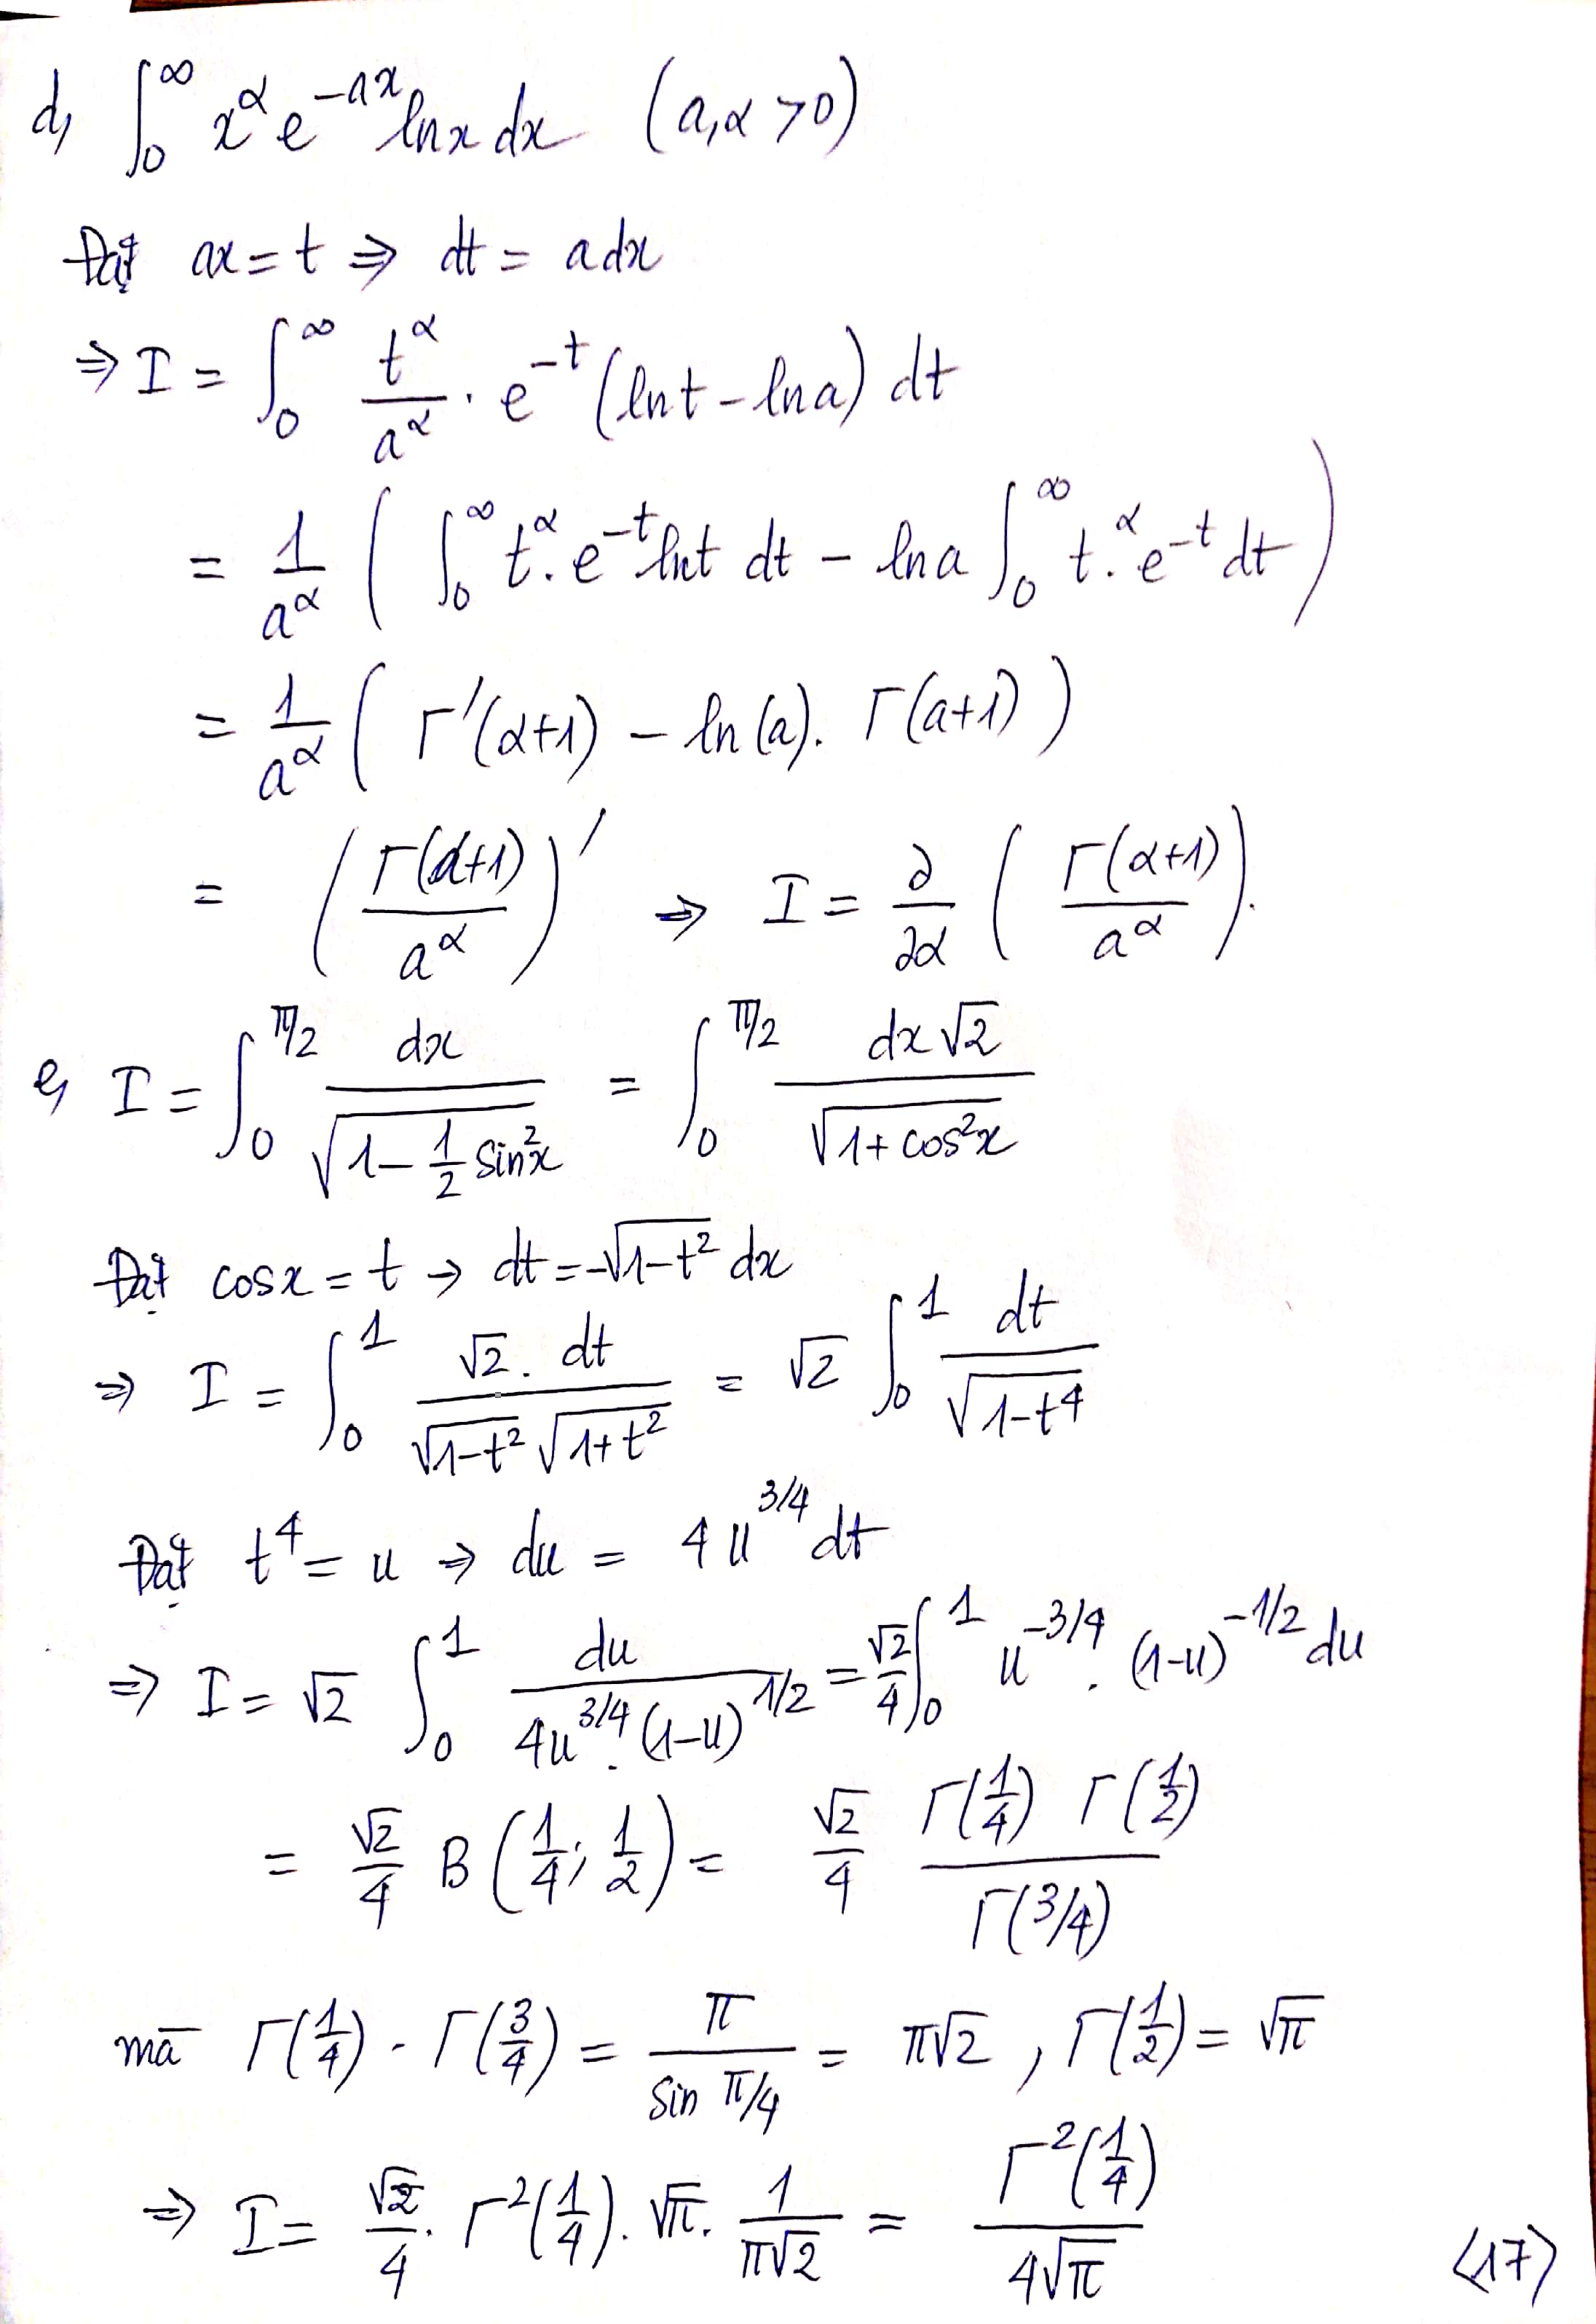 d, ∫₀^∞ x^α e^(-ax) lnx dx (a,α >0)
Đặt ax = t ⇒ dt = adx
⇒ I = ∫₀^∞ t^α/a^α . e^(-t) (lnt - lna) dt
= 1/a^α ( ∫₀^∞ t^α . e^(-t) lnt dt - lna ∫₀^∞ t.^α e^(-t) dt )
= 1/a^α ( Γ'(α+1) - ln(a). Γ(a+1) )
= ( Γ(α+1)/a^α )' ⇒ I = ∂/∂α ( Γ(α+1)/a^α ).
e, I = ∫₀^(π/2) dx/√(1 - 1/2 sin²x) = ∫₀^(π/2) dx√2/√(1+cos²x)
Đặt cosx = t → dt = -√(1-t²) dx
⇒ I = ∫₀^1 √2. dt/(√(1-t²) √(1+t²)) = √2 ∫₀^1 dt/√(1-t⁴)
Đặt t⁴ = u ⇒ du = 4u^(3/4) dt
⇒ I = √2 ∫₀^1 du/(4u^(3/4).(1-u)^(1/2)) = √2/4 ∫₀^1 u^(-3/4) . (1-u)^(-1/2) du
= √2/4 B(1/4; 1/2) = √2/4 Γ(1/4) Γ(1/2)/Γ(3/4)
mà Γ(1/4) . Γ(3/4) = π/sin π/4 = π√2 , Γ(1/2) = √π
⇒ I = √2/4 . Γ²(1/4). √π. 1/π√2 = Γ²(1/4)/4√π
<17>